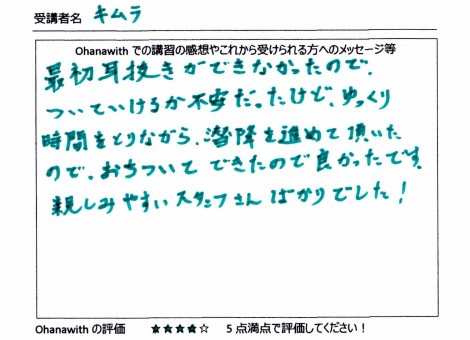 受講者名 キムラ
Ohanawith での講習の感想やこれから受けられる方へのメッセージ等
最初耳抜きができなかったので、
ついていけるか不安だったけど、ゆっくり
時間をとりながら、潜降を進めて頂いた
ので、おちついて できたので良かったです。
親しみやすいスタッフさん ばかりでした！
Ohanawith の評価 ★★★★☆ 5 点満点で評価してください！